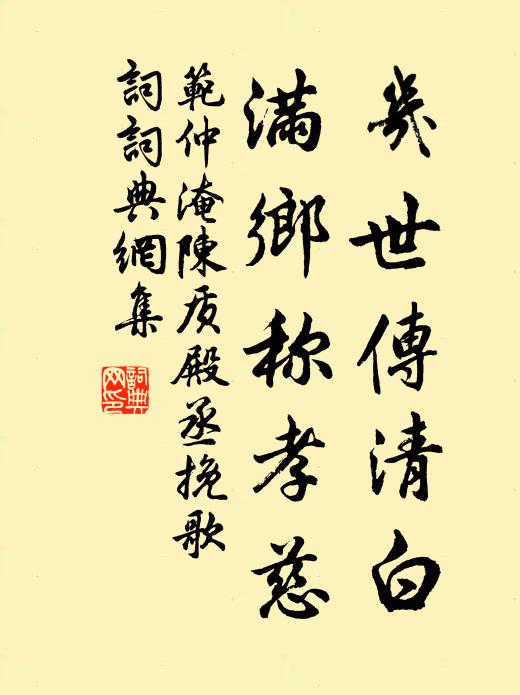 幾世傳清白
滿鄉称孝慈
範仲淹陳质殿丞挽歌
詞詞典網集
詞典
网印